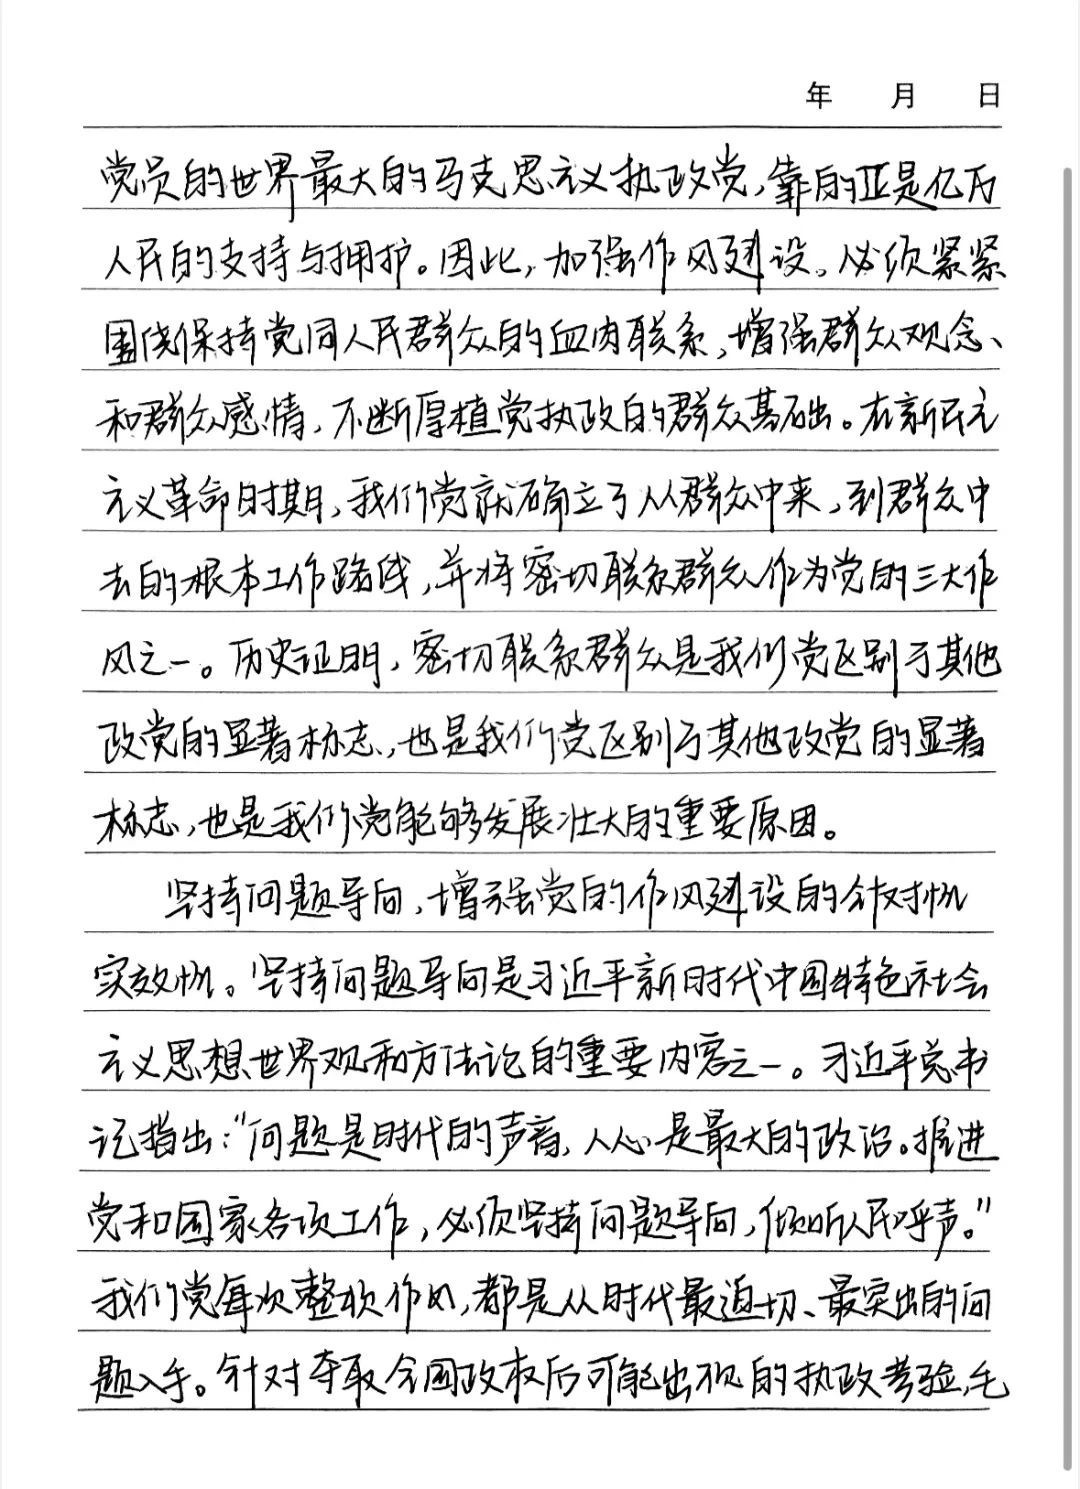 年 月 日
党员的世界最大的马克思主义执政党,靠的正是亿万
人民的支持与拥护。因此,加强作风建设。必须紧紧
围绕保持党同人民群众的血肉联系,增强群众观念、
和群众感情,不断厚植党执政的群众基础。在新民主
主义革命时期,我们党就确立了从群众中来,到群众中
去的根本工作路线,并将密切联系群众作为党的三大作
风之一。历史证明,密切联系群众是我们党区别于其他
政党的显著标志,也是我们党区别于其他政党的显著
标志,也是我们党能够发展壮大的重要原因。
坚持问题导向,增强党的作风建设的针对性
实效性。坚持问题导向是习近平新时代中国特色社会
主义思想世界观和方法论的重要内容之一。习近平总书
记指出:"问题是时代的声音,人心是最大的政治。推进
党和国家各项工作,必须坚持问题导向,倾听人民呼声。"
我们党每次整顿作风,都是从时代最迫切、最突出的问
题入手。针对夺取全国政权后可能出现的执政考验,毛